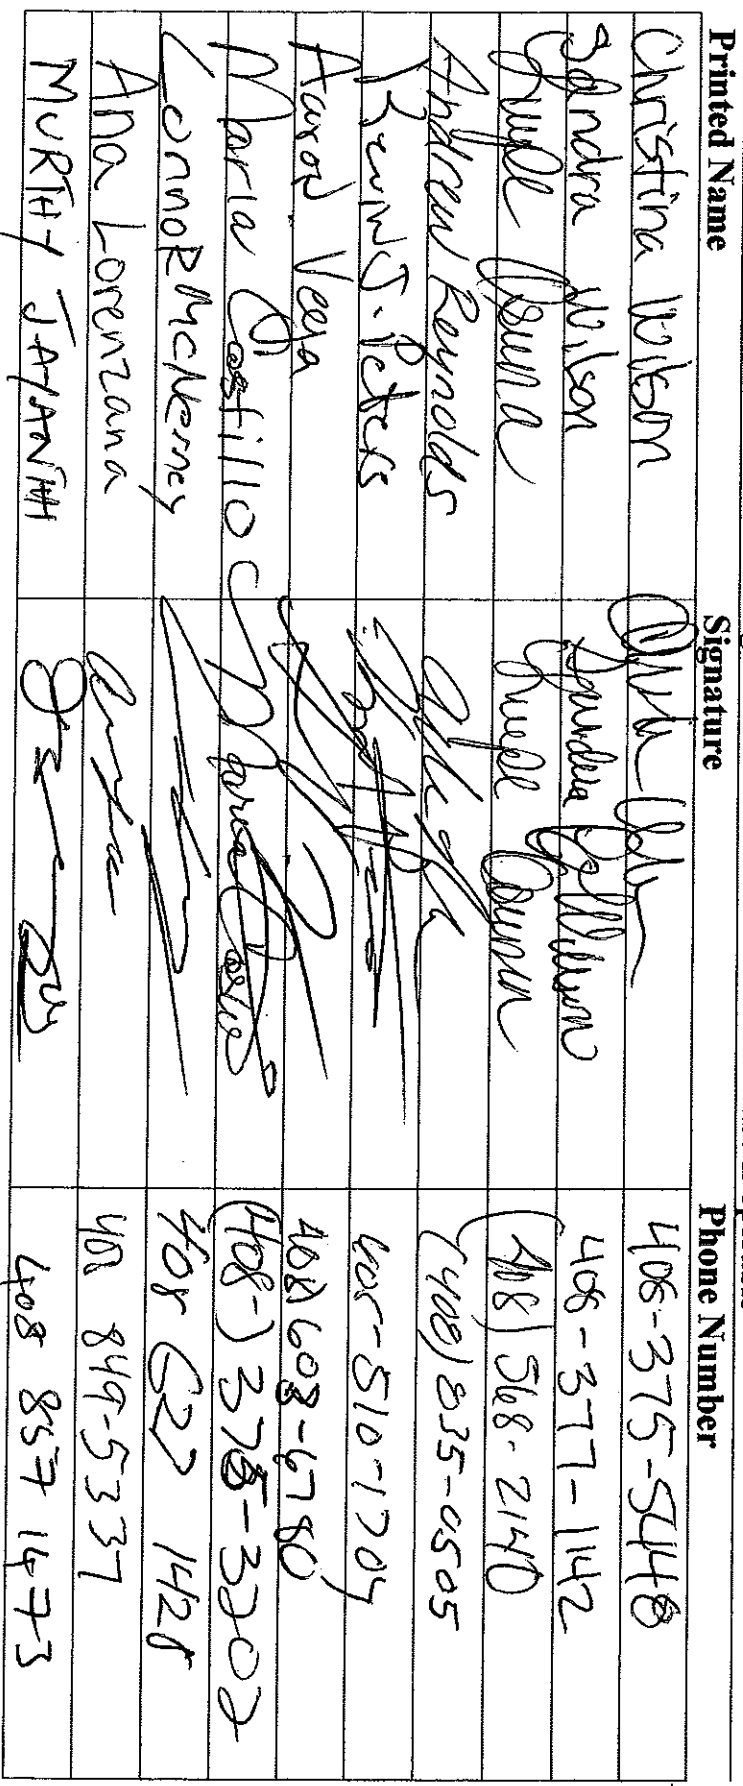 Printed Name Signature Phone Number
Christina Wilson 408-375-5448
Sandra Wilson Sandra Wilson 408-377-1142
(408) 568-2140
Andrew Reynolds (408) 835-0505
J. Peters 408-510-1704
Aaron Vega 408) 608-6780
Maria Castillo C Maria (408-) 378-3202
Connor McNerney 408 627 1428
Ana Lorenzana 849-5337
MURTHY JAYANTHI 408 857 1473